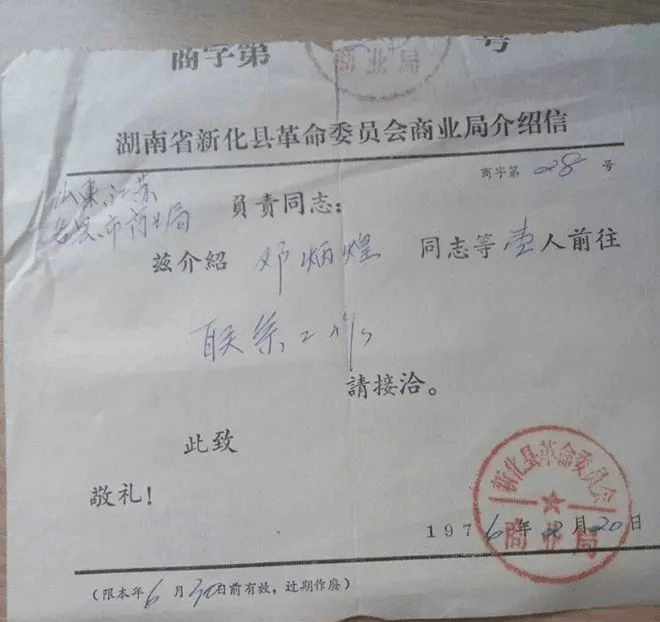 商字第 号
商业局
湖南省新化县革命委员会商业局介绍信
商字第28号
山东、江苏
各县、市商业局 負責同志:
茲介紹 邓炳煌 同志等壹人前往
联系工作
請接洽。
此致
敬礼!
新化县革命委员会
商业局
1976年2月20日
(限本年6月30日前有效,过期作废)